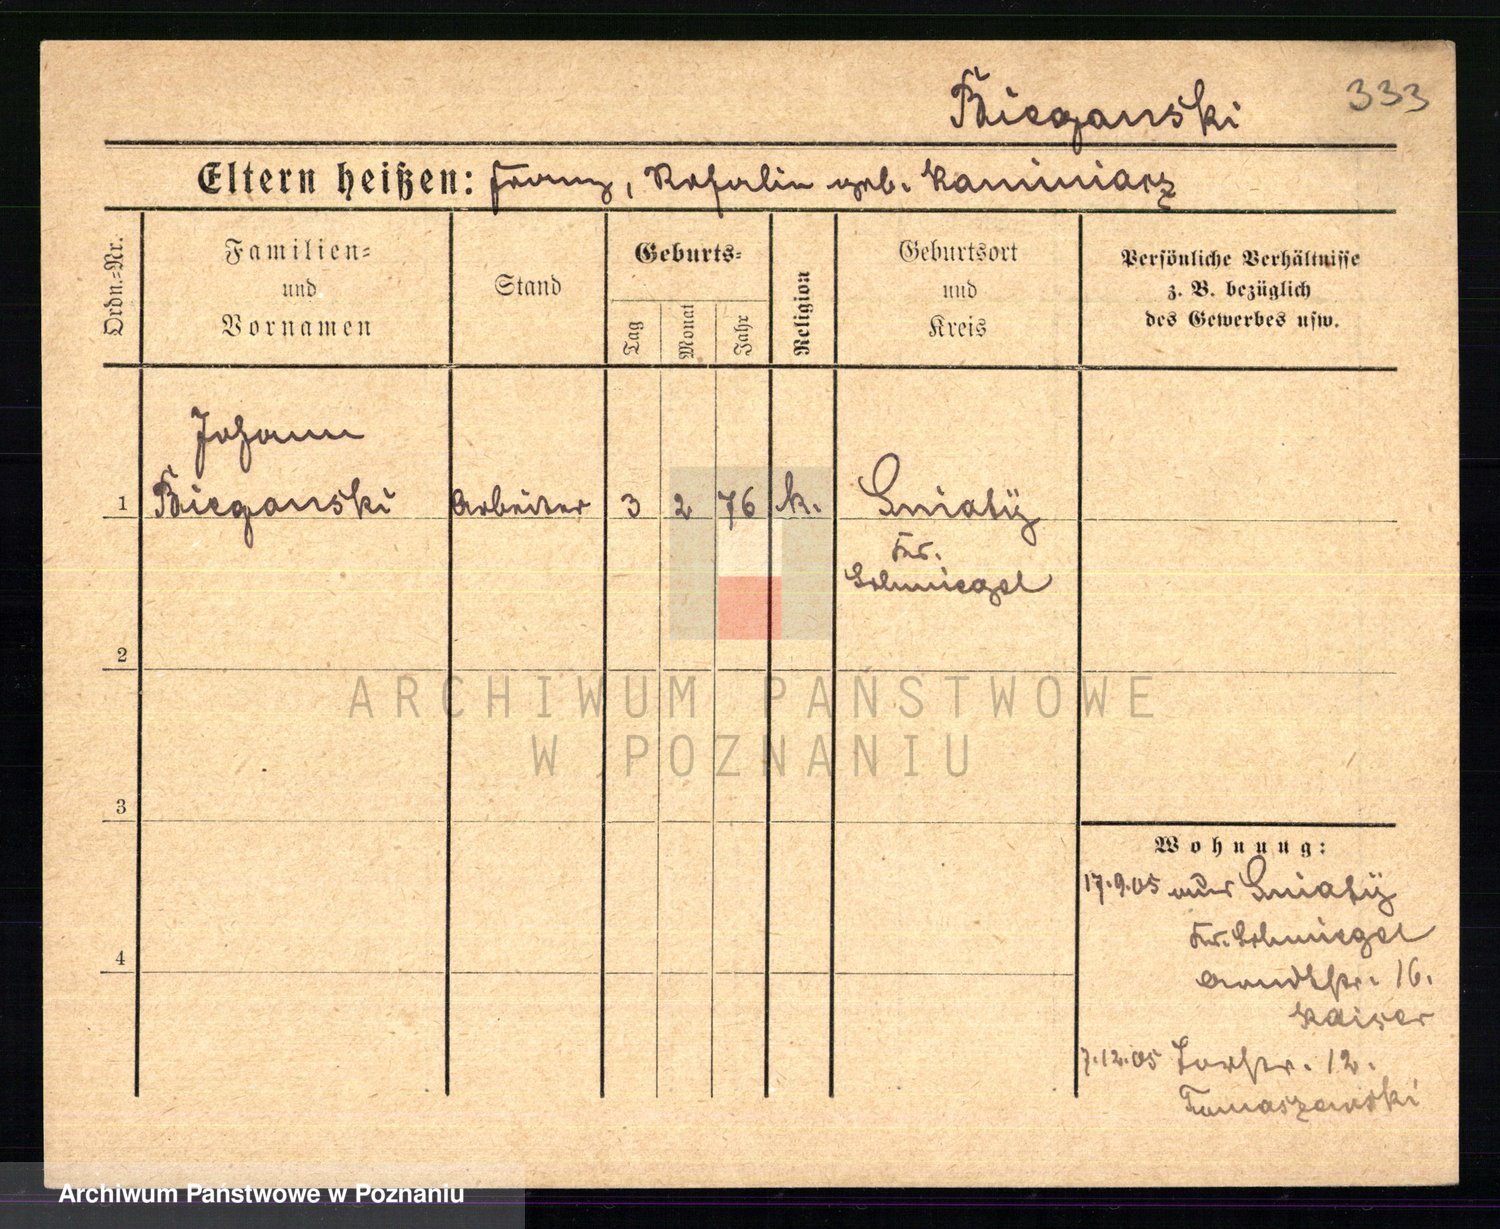 Bieganski 333
Eltern heißen: Franz, Rosalie geb. Kaminiarz
Ordn.-Nr.
Familien-
und
Vornamen
Stand
Geburts-
Tag
Monat
Jahr
Religion
Geburtsort
und
Kreis
Persönliche Verhältnisse
z. B. bezüglich
des Gewerbes usw.
Johann
1 Bieganski Arbeiter 3 2 76 k. Gniaty
Kr.
Schmiegel
2
ARCHIWUM PAŃSTWOWE
W POZNANIU
3
Wohnung:
17.9.05 aus Gniaty
Kr. Schmiegel
4
Arndtstr. 16.
Kaiser
7.12.05 Torstr. 12.
Tomaszewski
Archiwum Państwowe w Poznaniu